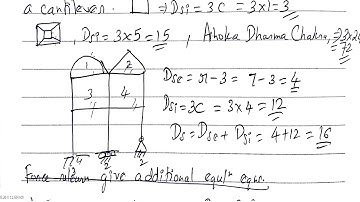 a cantilever. ⇒ Dsi = 3C = 3×1 = 3
, Dsi = 3×5 = 15 , Ashoka Dharma Chakra, = 3×24
72
1 2
3 4
Dse = r-3 = 7-3 = 4
Dsi = 3C = 3×4 = 12
Ds = Dse + Dsi = 4+12 = 16
3 2 2
Force release give additional equl^m eqns.